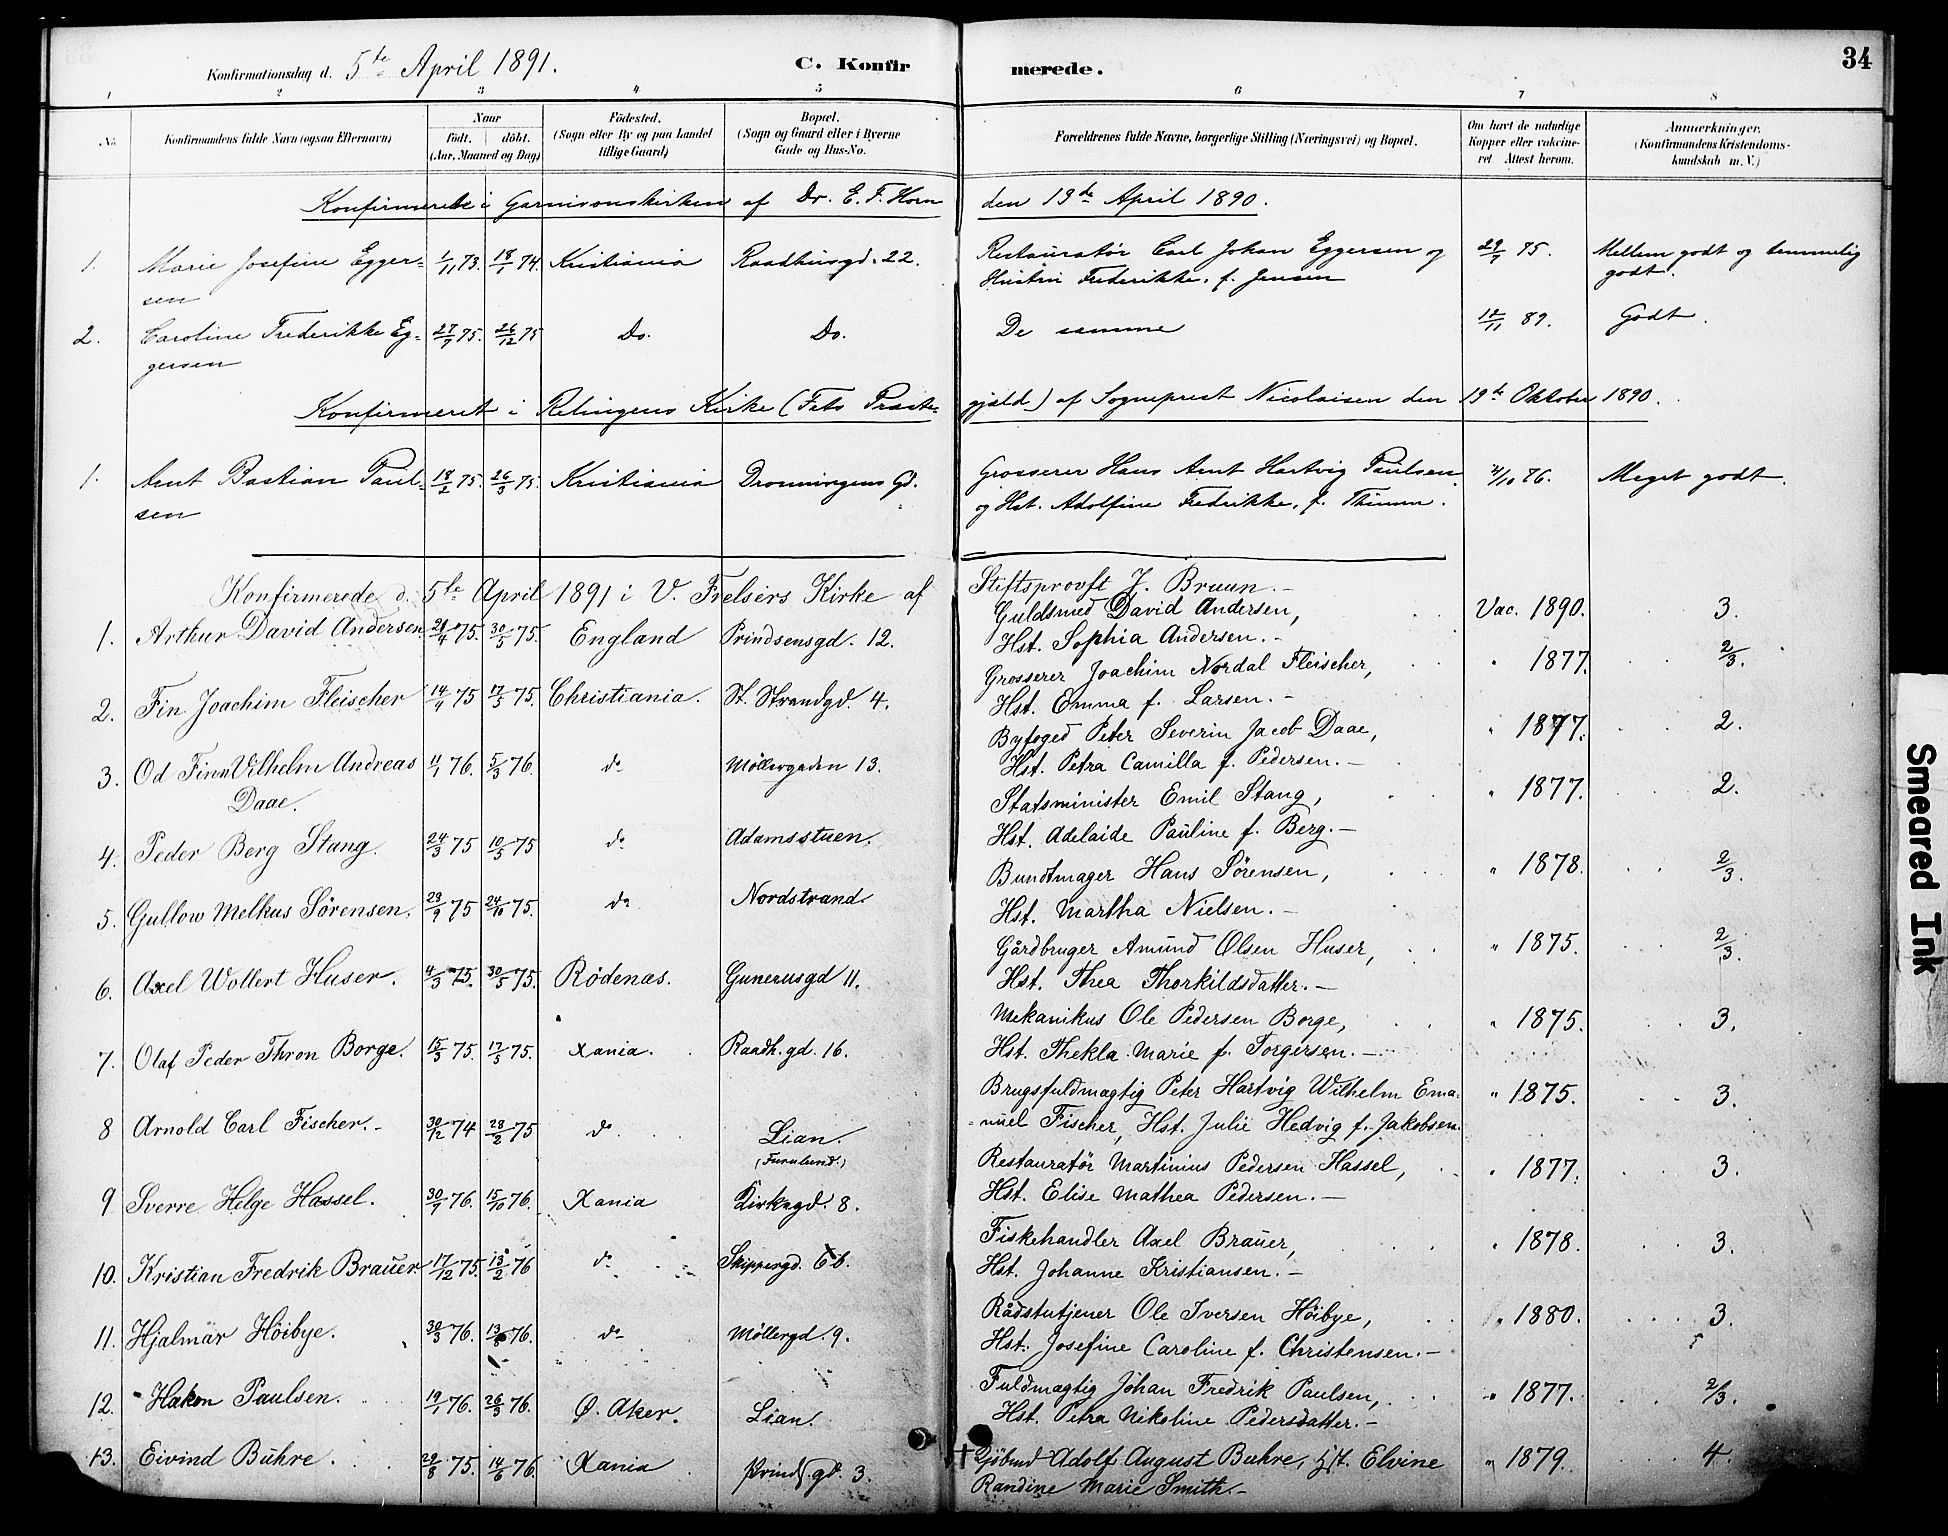 Konfirmationsdag d. 5te April 1891. C. Konfirmerede. 34
1 2 3 4 5 6 7 8
No. Konfirmandens fulde Navn (ogsaa Efternavn) Naar født. døbt. (Aar, Maaned og Dag) Fødested. (Sogn eller By og paa Landet tillige Gaard) Bopæl. (Sogn og Gaard eller i Byerne Gade og Hus-No. Forældrenes fulde Navne, borgerlige Stilling (Næringsvei) og Bopæl. Om havt de naturlige Kopper eller vakcineret. Attest herom. Anmærkninger. (Konfirmandens Kristendomskundskab m. V.)
Konfirmerede i Garnisonskirken af Dr. E. F. Horn den 19de April 1890.
1. Marie Josefine Egger- 1/11 73. 18/1 74. Kristiania Raadhusgd. 22. Restauratør Carl Johan Eggersen og 29/7 75. Mellem godt og temmelig
sen Hustru Frederikke, f. Jensen godt.
2. Caroline Frederikke Eg- 27/7 75. 26/12 75 Do. Do. De samme 12/11 89. Godt.
gersen
Konfirmeret i Relingens Kirke (Fets Præste- gjæld) af Sogneprest Nicolaisen den 19de Oktober 1890.
1. Arnt Bastian Paul- 18/2 75. 26/3 75. Kristiania Dronningens Gd. Grosserer Hans Arnt Hartvig Paulsen 4/10 76. Meget godt.
sen og Hst. Adolfine Fredrikke, f. Thimm.
Konfirmerede d. 5te April 1891 i V. Frelsers Kirke af Stiftsprovst J. Bruun.-
Guldsmed David Andersen, Vac. 1890. 3.
1. Arthur David Andersen 21/4 75. 30/5 75. England Prindsensgd. 12. Hst. Sophia Andersen.-
Grosserer Joachim Nordal Fleischer, " 1877. 2/3.
2. Fin Joachim Fleischer 14/4 75 17/5 75. Christiania. St. Strandgd. 4. Hst. Emma f. Larsen.-
Byfoged Peter Severin Jacob Daae, " 1877. 2.
3. Od Finn Vilhelm Andreas 11/1 76. 5/3 76. do Møllergaden 13. Hst. Petra Camilla f. Pedersen.-
Daae. Statsminister Emil Stang, " 1877. 2.
4. Peder Berg Stang. 24/3 75 10/5 75 do Adamsstuen. Hst. Adelaide Pauline f. Berg.-
Bundtmager Hans Sørensen, " 1878. 2/3.
5. Gullow Melkus Sørensen. 23/9 75 24/10 75. do Nordstrand. Hst. Martha Nielsen.-
Gårdbruger Amund Olsen Huser, " 1875. 2/3.
6. Axel Wollert Huser. 4/3 75. 30/5 75. Rödenas. Gunerusgd 11. Hst. Thea Thorkildsdatter.-
Mekanikus Ole Pedersen Borge, " 1875. 3.
7. Olaf Peder Thron Borge. 15/3 75. 17/5 75. Xania. Raadh.gd. 16. Hst. Thekla Marie f. Torgersen.-
Brugsfuldmægtig Peter Hartvig Wilhelm Ema- " 1875. 3.
8 Arnold Carl Fischer.- 30/12 74 28/2 75 do Lian. -nuel Fischer, Hst. Julie Hedvig f. Jakobsen.
(Furulund.) Restauratør Martinius Pedersen Hassel, " 1877. 3.
9. Sverre Helge Hassel. 30/7 76. 15/10 76. Xania Kirkegd. 8. Hst. Elise Mathea Pedersen.-
Fiskehandler Axel Braüer, " 1878. 3.
10. Kristian Fredrik Braüer. 17/12 75. 13/2 76 do Skippergd. 6b. Hst. Johanne Kristiansen.-
Rådstutjener Ole Iversen Höibye, " 1880. 3.
11. Hjalmar Höibye. 30/3 76. 13/8 76. do Møllergd. 9. Hst. Josefine Caroline f. Christensen.-
Fuldmægtig Johan Fredrik Paulsen, " 1877. 2/3.
12. Hakon Paulsen. 19/1 76. 26/3 76. Ø. Aker. Lian. Hst. Petra Nikoline Pedersdatter.-
13. Eivind Buhre. 29/8 75. 14/6 76. Xania Prinds.gd. 3. Adolf August Buhre, Hst. Elvine " 1879. 4.
Randine Marie Smith.-
Smeared Ink